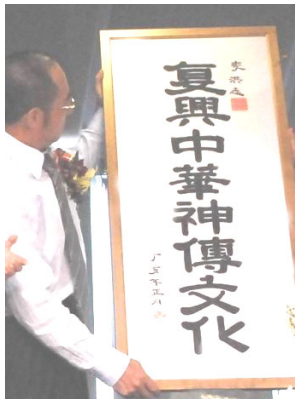 复興中華神傳文化